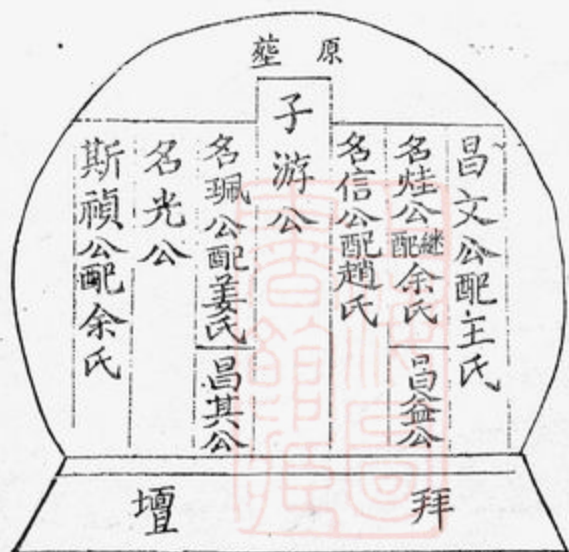 原塋
昌文公配王氏
名烓公継配余氏
昌益公
名信公配趙氏
子游公
名珮公配姜氏
昌其公
名光公
斯禎公配余氏
拜壇